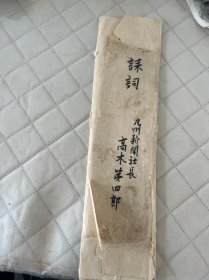 誄詞
九州新聞社長
高木第四郎